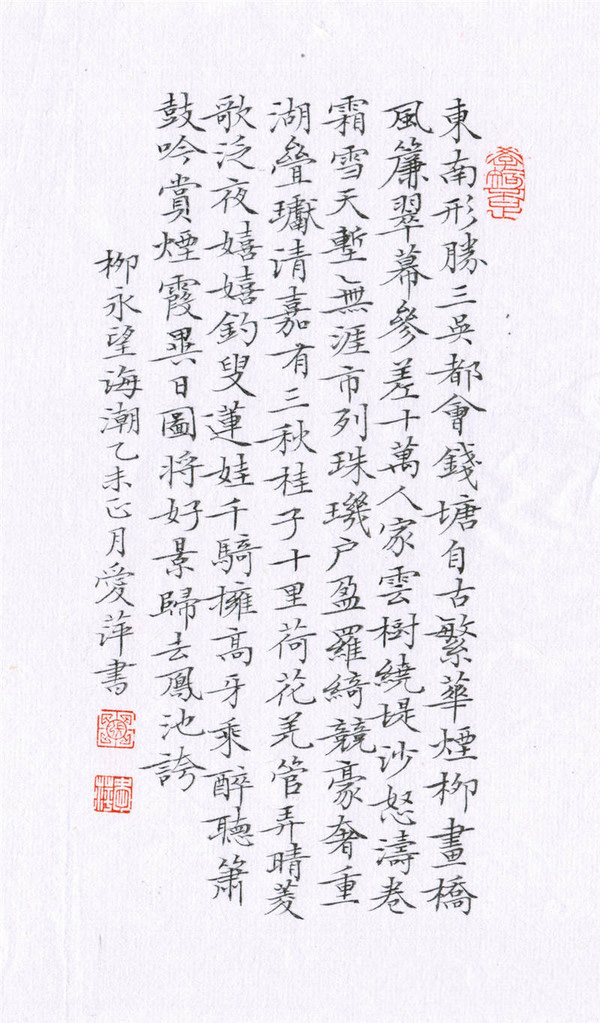 東南形勝三吳都會錢塘自古繁華煙柳畫橋
風簾翠幕參差十萬人家雲樹繞堤沙怒濤卷
霜雪天塹無涯市列珠璣户盈羅綺競豪奢重
湖疊瓛清嘉有三秋桂子十里荷花羌管弄晴菱
歌泛夜嬉嬉釣叟蓮娃千騎擁高牙乘醉聽簫
鼓吟賞煙霞異日圖將好景歸去鳳池誇
柳永望海潮乙未正月愛萍書